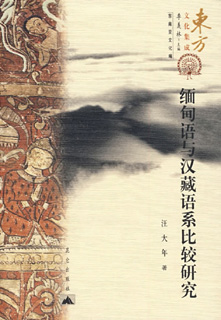 東方
文化集成
季羡林 主编
东南亚文化编
缅甸语与汉藏语系比较研究
汪大年 著
昆仑出版社